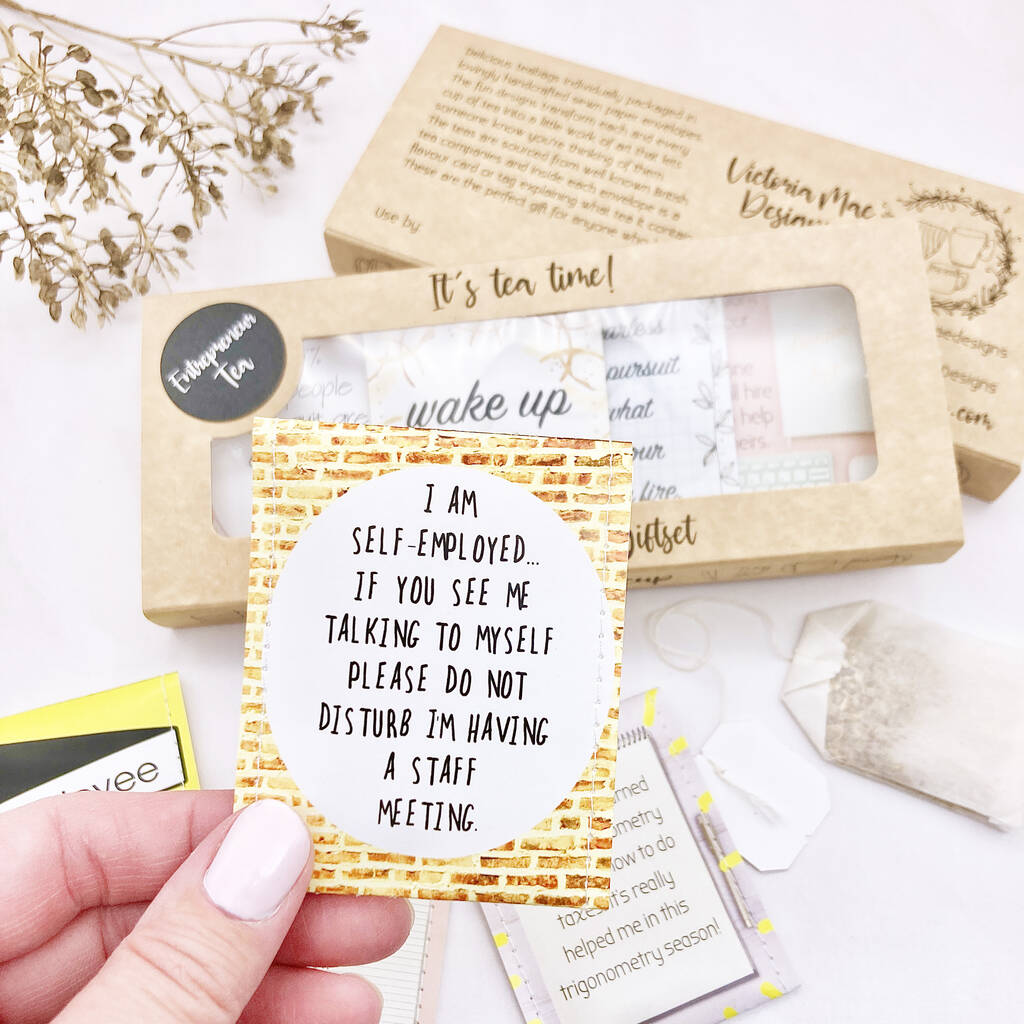 Delicious teabags individually packaged in
lovingly handcrafted sewn paper envelopes.
The fun designs transform each and every
cup of tea into a little work of art that lets
someone know you're thinking of them.
The teas are sourced from well known British
tea companies and inside each envelope is a
flavour card or tag explaining what tea it
These are the perfect gift for anyone who
Use by
Victoria Mae
Designs
.com
It's tea time!
Entrepreneur
Tea
people
wake up
pursuit
what
fire.
hire
help
giftset
I AM
SELF-EMPLOYED...
IF YOU SEE ME
TALKING TO MYSELF
PLEASE DO NOT
DISTURB I'M HAVING
A STAFF
MEETING.
how to do
taxes it's really
helped me in this
trigonometry season!